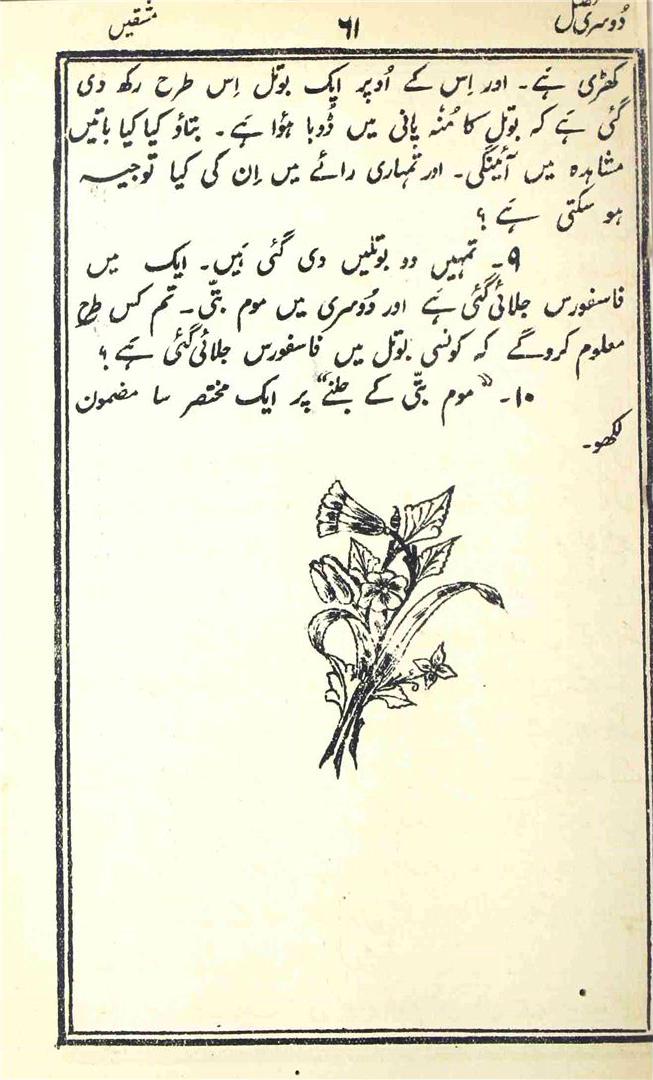 دُوسری فصل
۶۱
مشقیں
کھڑی ہَے۔ اور اِس کے اُوپر ایک بوتل اِس طرح رکھ دی
گئی ہے کہ بوتل کا مُنہ پانی میں ڈُوبا ہؤا ہَے۔ بتاؤ کیا کیا باتیں
مشاہدہ میں آئینگی۔ اور تمہاری رائے میں اِن کی کیا توجیہ
ہو سکتی ہَے ؟
۹۔ تمہیں دو بوتلیں دی گئی ہَیں۔ ایک میں
فاسفورس جلائی گئی ہَے اور دُوسری میں موم بتّی۔ تم کس طرح
معلوم کروگے کہ کونسی بوتل میں فاسفورس جلائی گئی ہَے ؟
۱۰۔ “موم بتّی کے جلنے” پر ایک مختصر سا مضمون
لکھو۔